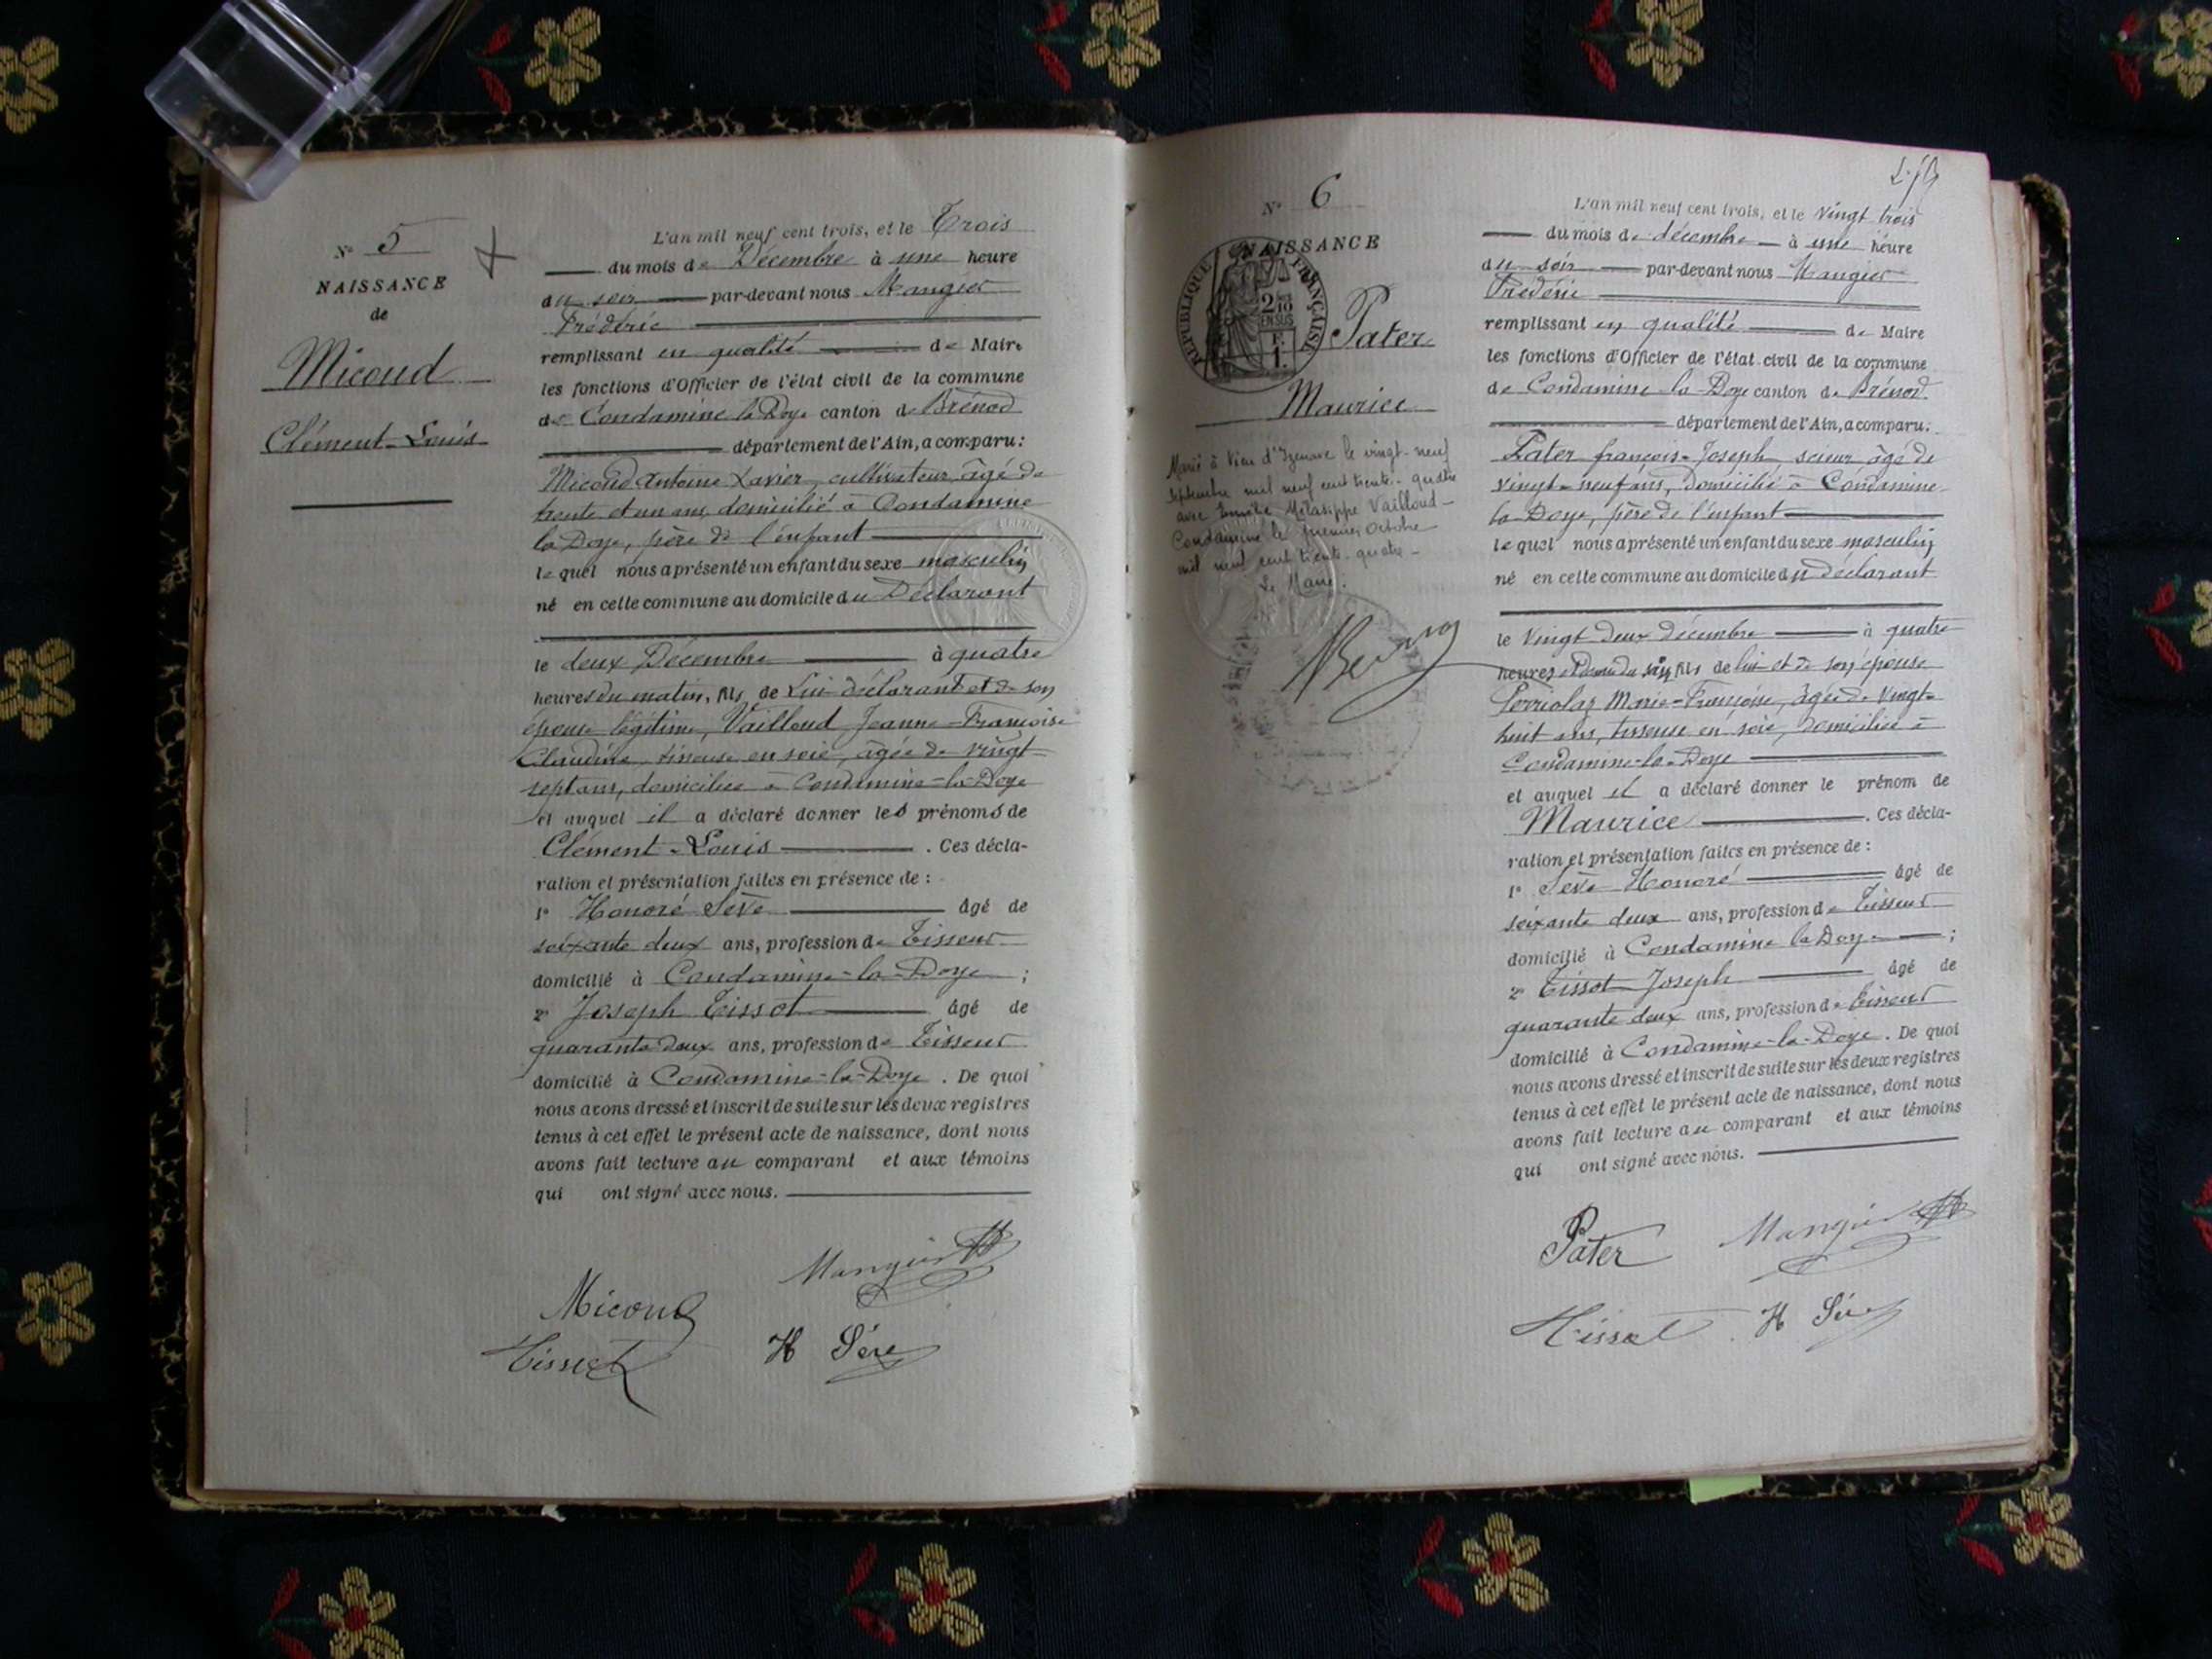 N° 5
NAISSANCE
de
Micoud
Clément-Louis
L'an mil neuf cent trois, et le Trois
du mois de Décembre à une heure
du soir par-devant nous Mangier
Frédéric
remplissant en qualité de Maire
les fonctions d'Officier de l'état civil de la commune
de Condamine la Doye canton de Brénod
département de l'Ain, a comparu:
Micoud Antoine Xavier, cultivateur, âgé de
trente et un ans, domicilié à Condamine
la Doye, père de l'enfant
lequel nous a présenté un enfant du sexe masculin
né en cette commune au domicile du Déclarant
le deux Décembre à quatre
heures du matin, fils de Lui déclarant et de son
épouse légitime, Vailloud Jeanne-Françoise
Claudine, tisseuse en soie, âgée de vingt
sept ans, domiciliée à Condamine-la-Doye
et auquel il a déclaré donner les prénoms de
Clément-Louis . Ces décla-
ration et présentation faites en présence de :
1° Honoré Sève âgé de
soixante deux ans, profession de Tisseur
domicilié à Condamine-la-Doye ;
2° Joseph Tissot âgé de
quarante deux ans, profession de Tisseur
domicilié à Condamine-la-Doye . De quoi
nous avons dressé et inscrit de suite sur les deux registres
tenus à cet effet le présent acte de naissance, dont nous
avons fait lecture au comparant et aux témoins
qui ont signé avec nous.
Mangier
Micoud
Tissot H Séve
N° 6
NAISSANCE
RÉPUBLIQUE FRANÇAISE
2/10
EN SUS
F.
1.
Pater
Maurice
Marié à Vieu d'Izenave le vingt-neuf
septembre mil neuf cent trente-quatre
avec Vailloud-
Condamine le premier octobre
mil neuf cent trente-quatre-
Le Maire.
L'an mil neuf cent trois, et le vingt trois
du mois de décembre à une heure
du soir par-devant nous Mangier
Frédéric
remplissant en qualité de Maire
les fonctions d'Officier de l'état civil de la commune
de Condamine la Doye canton de Brénod
département de l'Ain, a comparu:
Pater françois-Joseph scieur âgé de
vingt-neuf ans, Domicilié à Condamine
la Doye, père de l'enfant
lequel nous a présenté un enfant du sexe masculin
né en cette commune au domicile du déclarant
le vingt deux décembre à quatre
heures et demi du soir fils de lui et de son épouse
Perriolaz Marie-Françoise, âgée de vingt-
huit ans, tisseuse en soie, domiciliée à
Condamine-la-Doye
et auquel il a déclaré donner le prénom de
Maurice . Ces décla-
ration et présentation faites en présence de :
1° Sève Honoré âgé de
soixante deux ans, profession de Tisseur
domicilié à Condamine la Doye ;
2° Tissot Joseph âgé de
quarante deux ans, profession de Tisseur
domicilié à Condamine-la-Doye . De quoi
nous avons dressé et inscrit de suite sur les deux registres
tenus à cet effet le présent acte de naissance, dont nous
avons fait lecture au comparant et aux témoins
qui ont signé avec nous.
Pater Mangier
Tissot H Séve